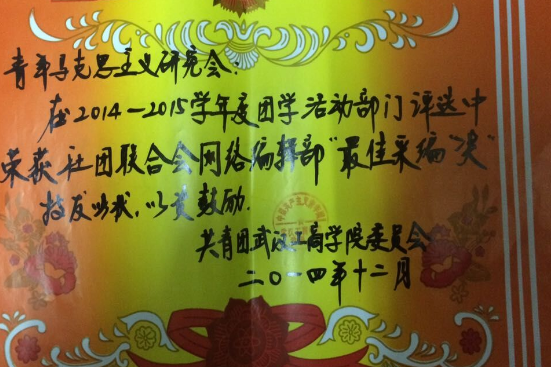 青年马克思主义研究会:
在2014-2015学年度团学活动部门评选中
荣获社团联合会网络编辑部"最佳采编"奖"
技发此状,以资鼓励.
共青团武汉工商学院委员会
二〇一四年十二月